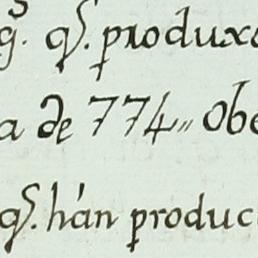 q̃. qͤ. produxe
a de 774,, Obe
qͤ. hán produc